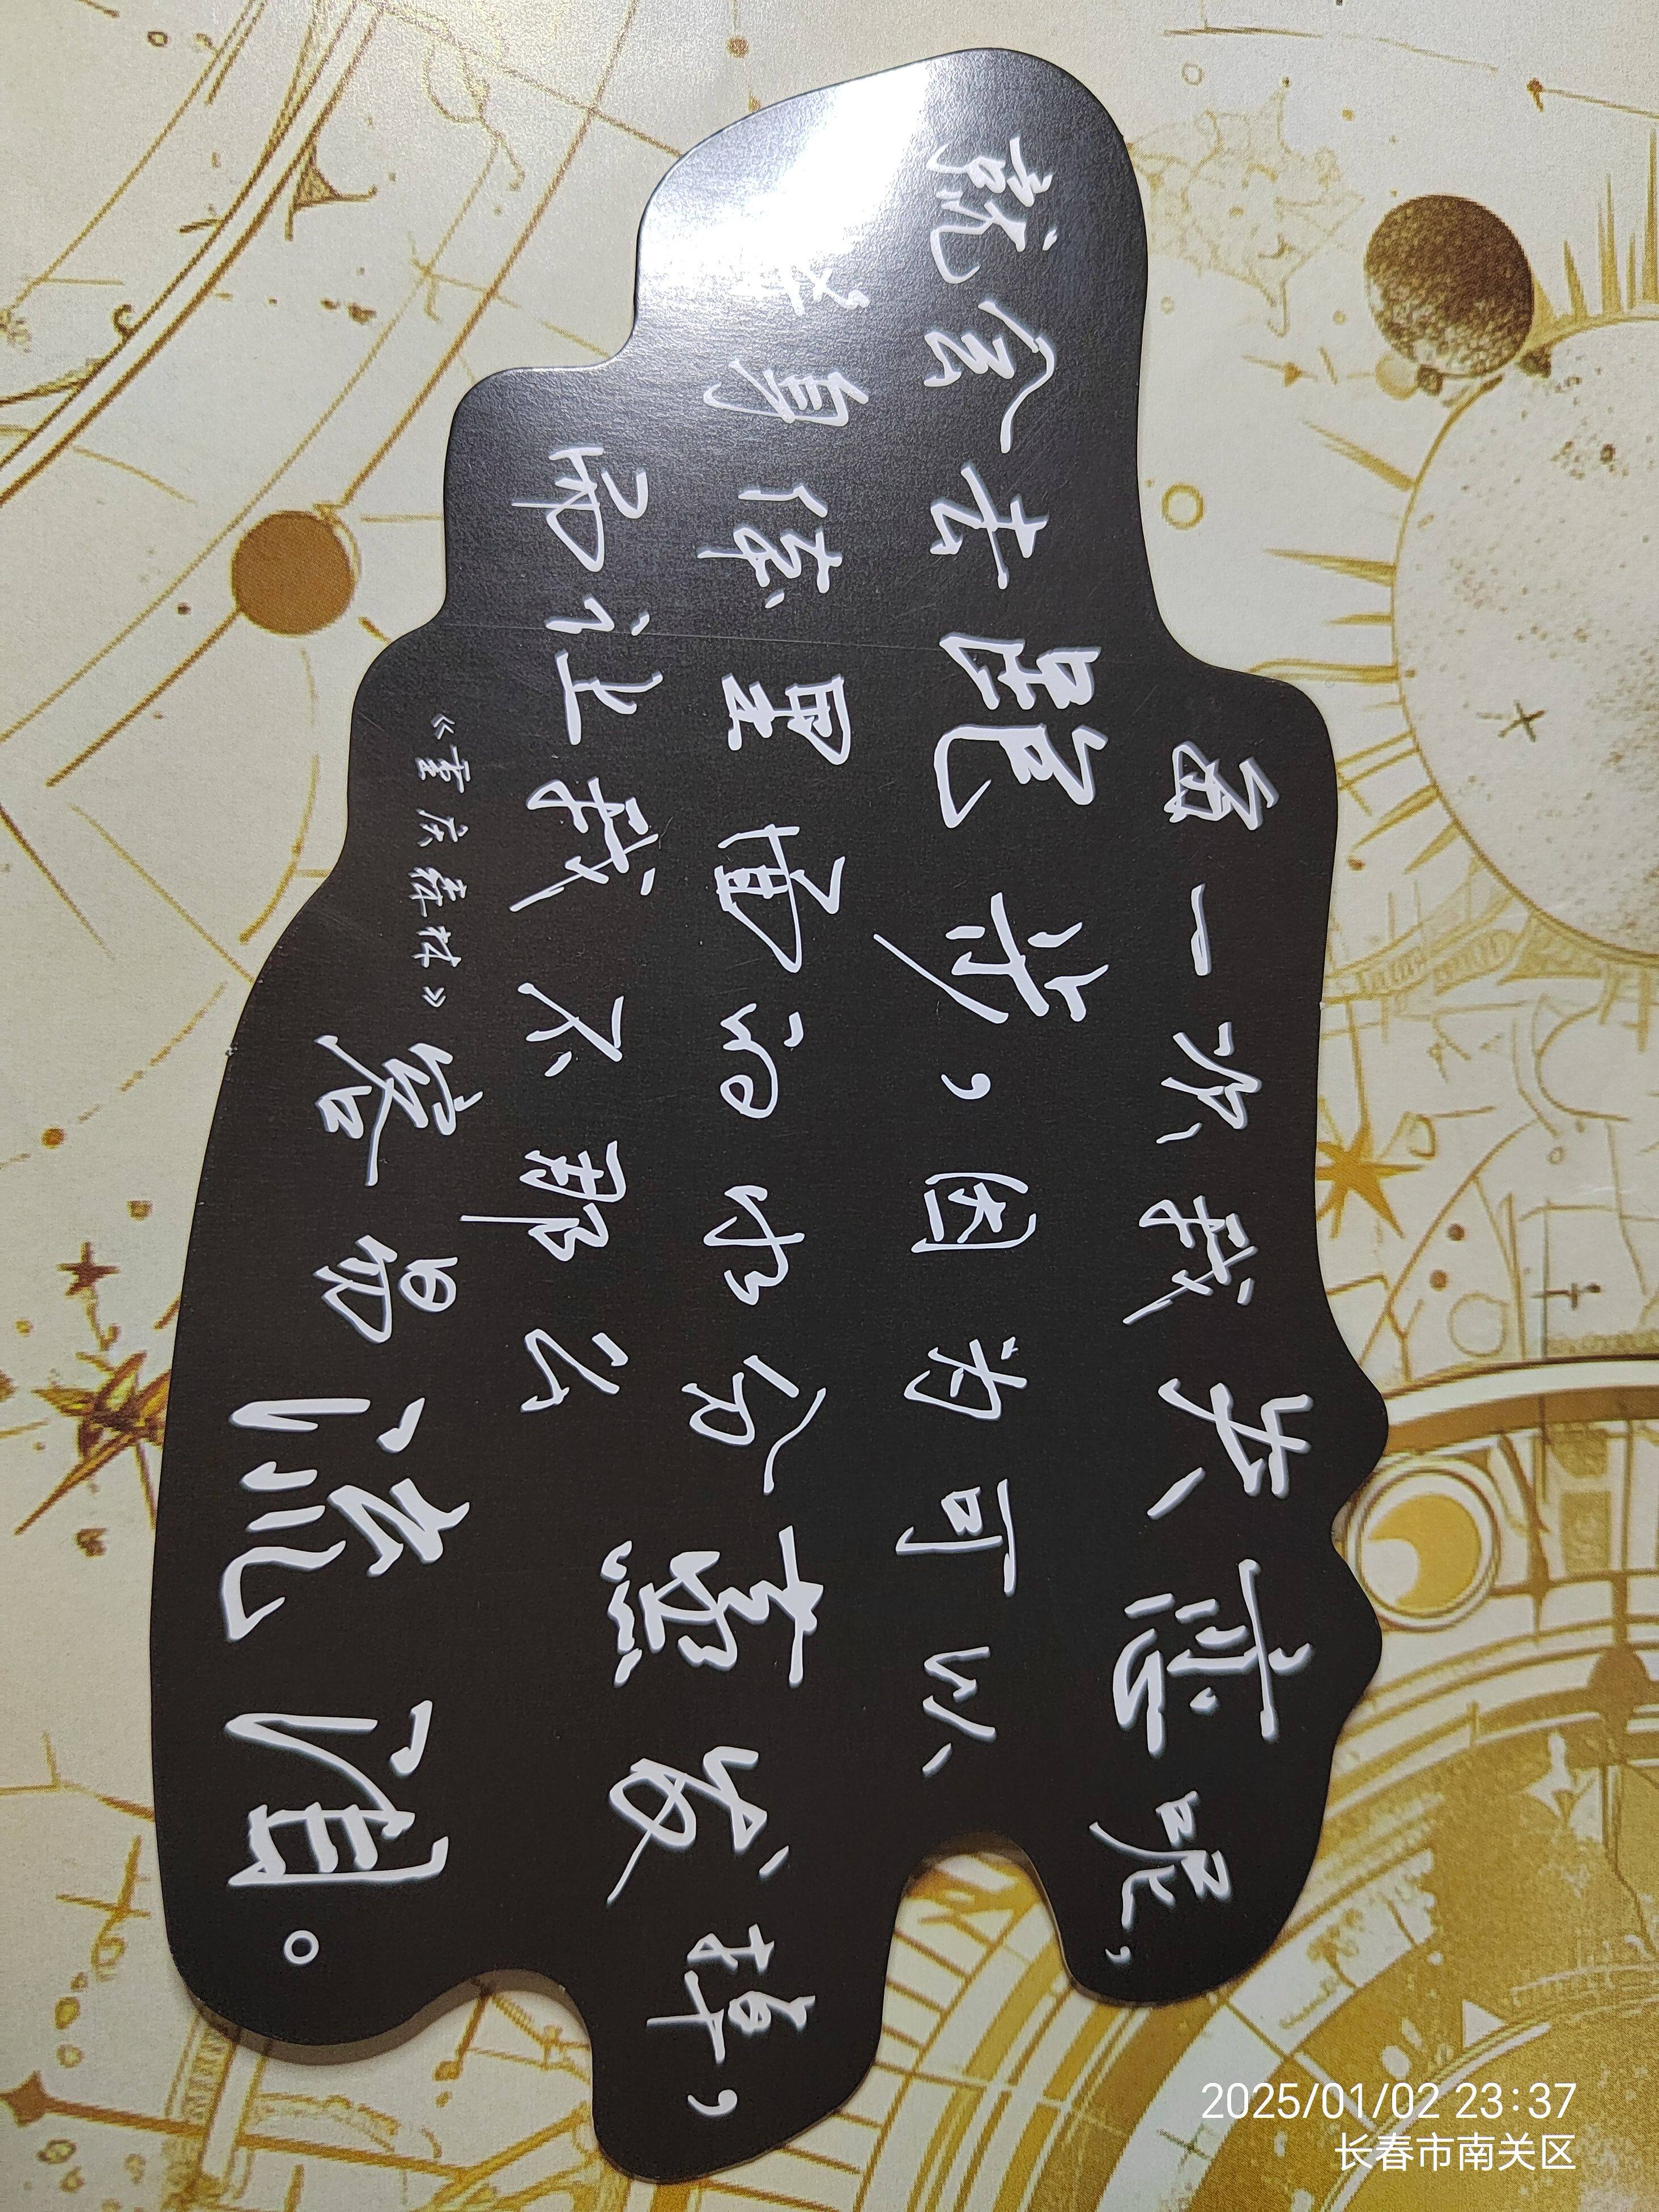 每一次我失恋呢,
就会去跑步,因为可以
将身体里面的水分蒸发掉,
而让我不那么
容易流泪。
《重庆森林》
2025/01/02 23:37
长春市南关区